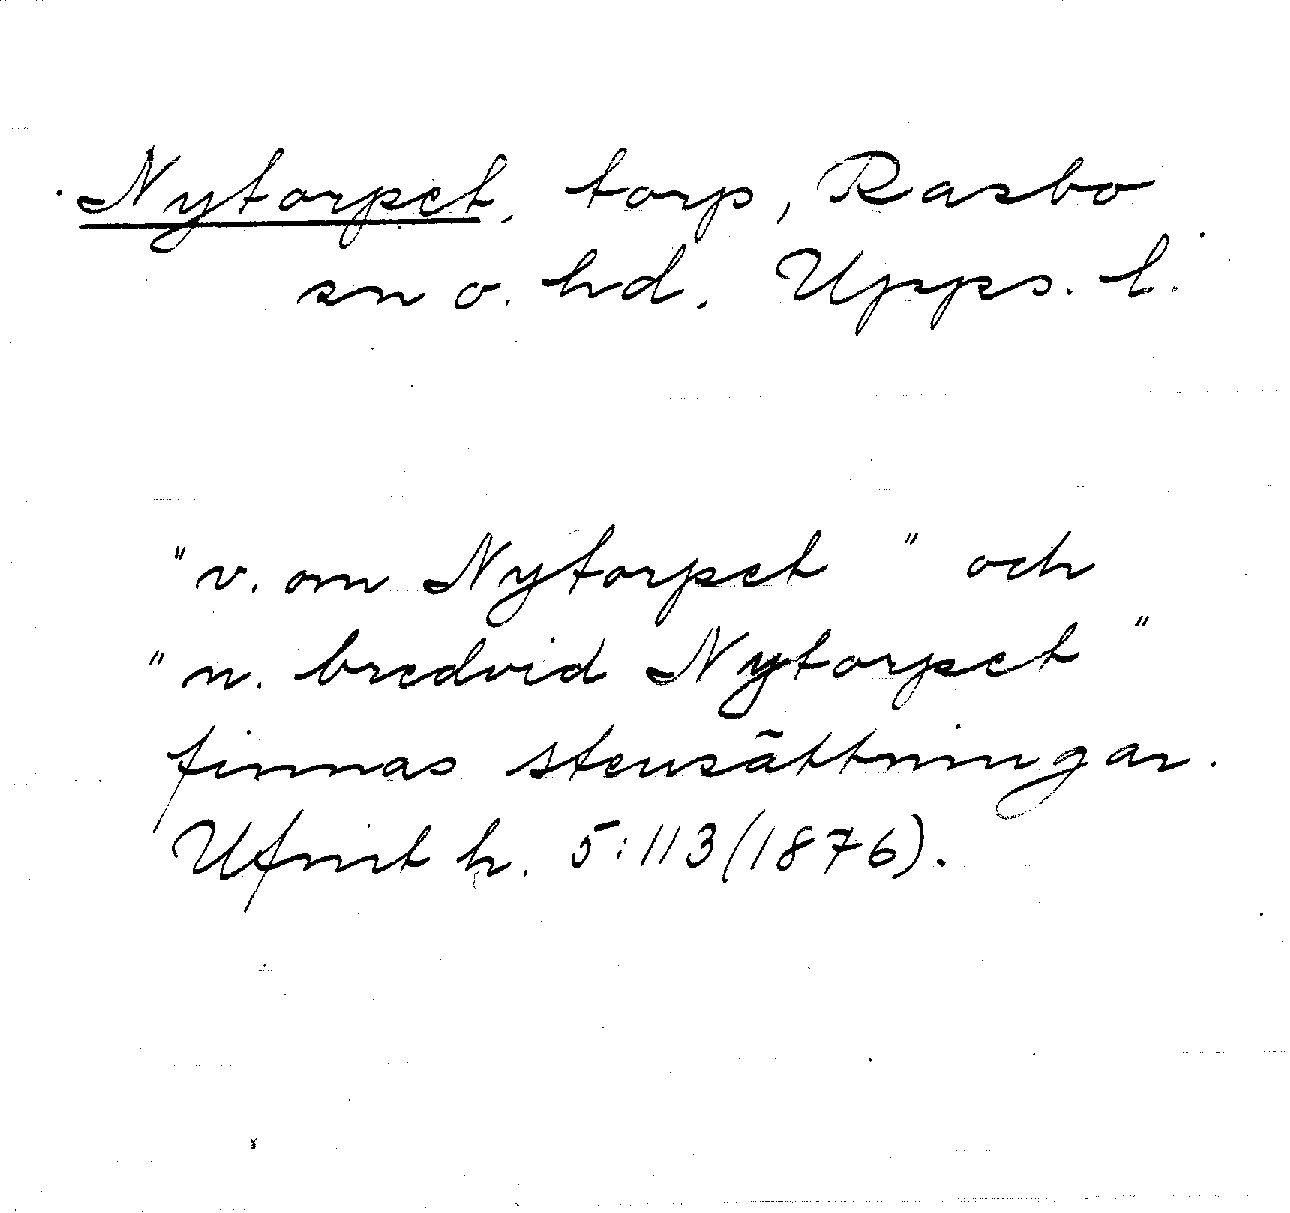 Nytorpet, torp, Rasbo
sn o. hd. Upps. l.
"v. om Nytorpet" och
"n. bredvid Nytorpet"
finnas stensättningar.
Ufmt h. 5:113(1876).